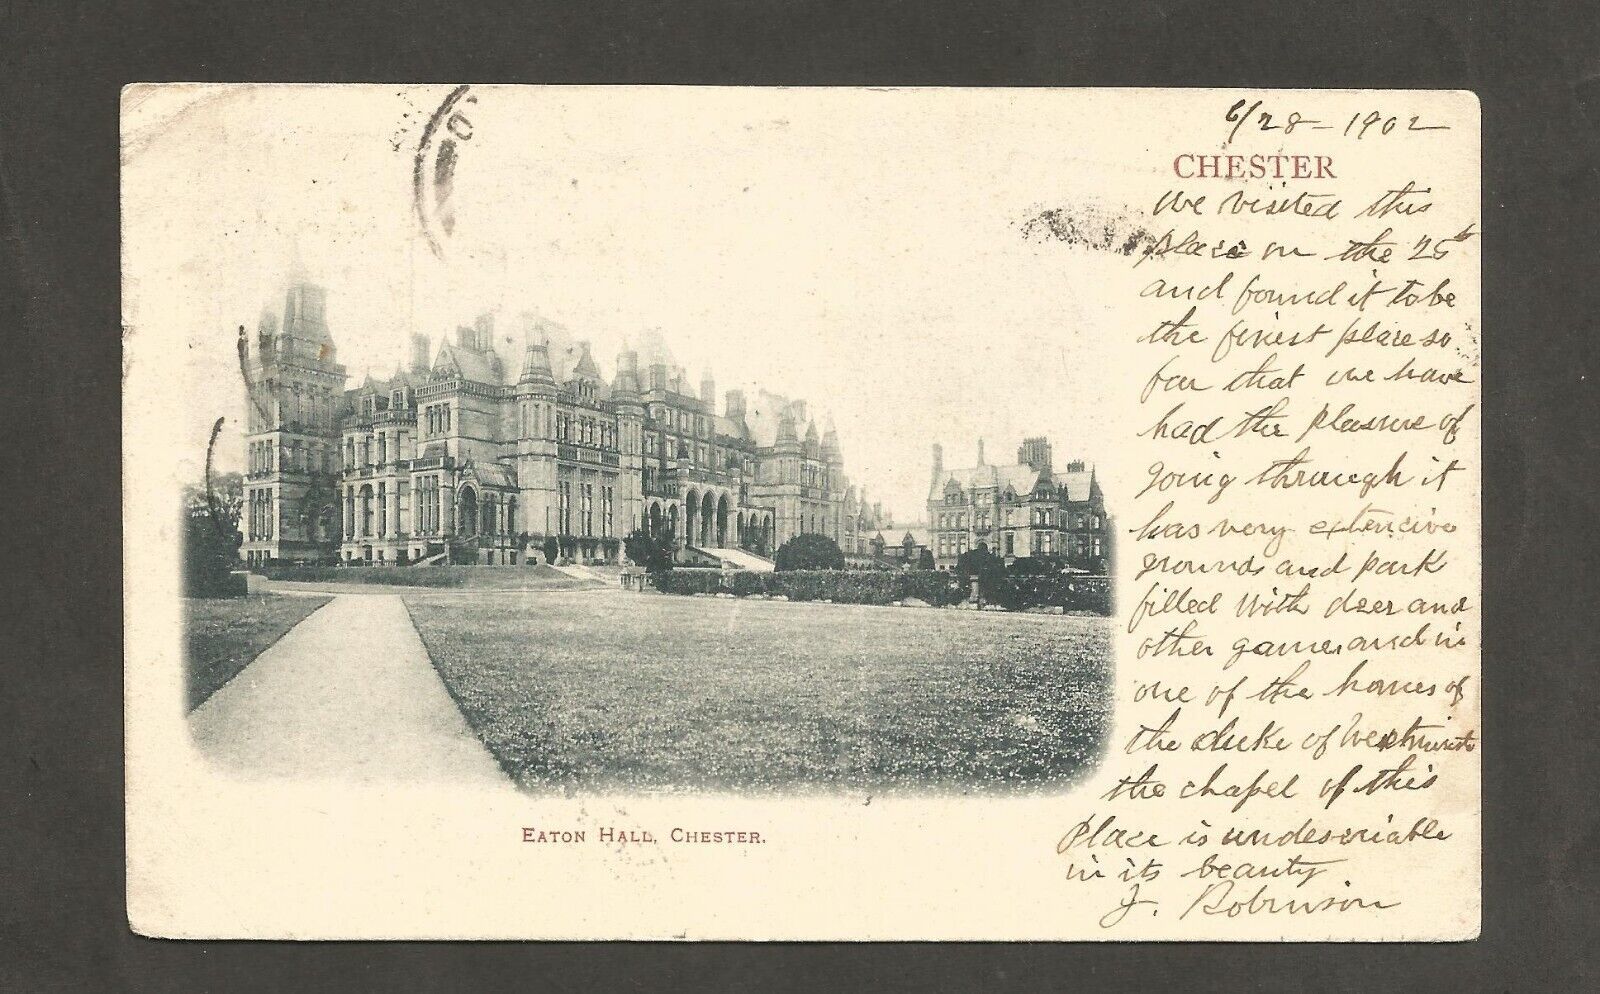 6/28-1902
CHESTER
We visited this
place on the 25th
and found it to be
the finest place so
far that we have
had the pleasure of
going through it
has very extencive
grounds and park
filled with deer and
other game and in
one of the homes of
the duke of Westminster
the chapel of this
place is undescriable
in its beauty
J. Robinson
EATON HALL, CHESTER.